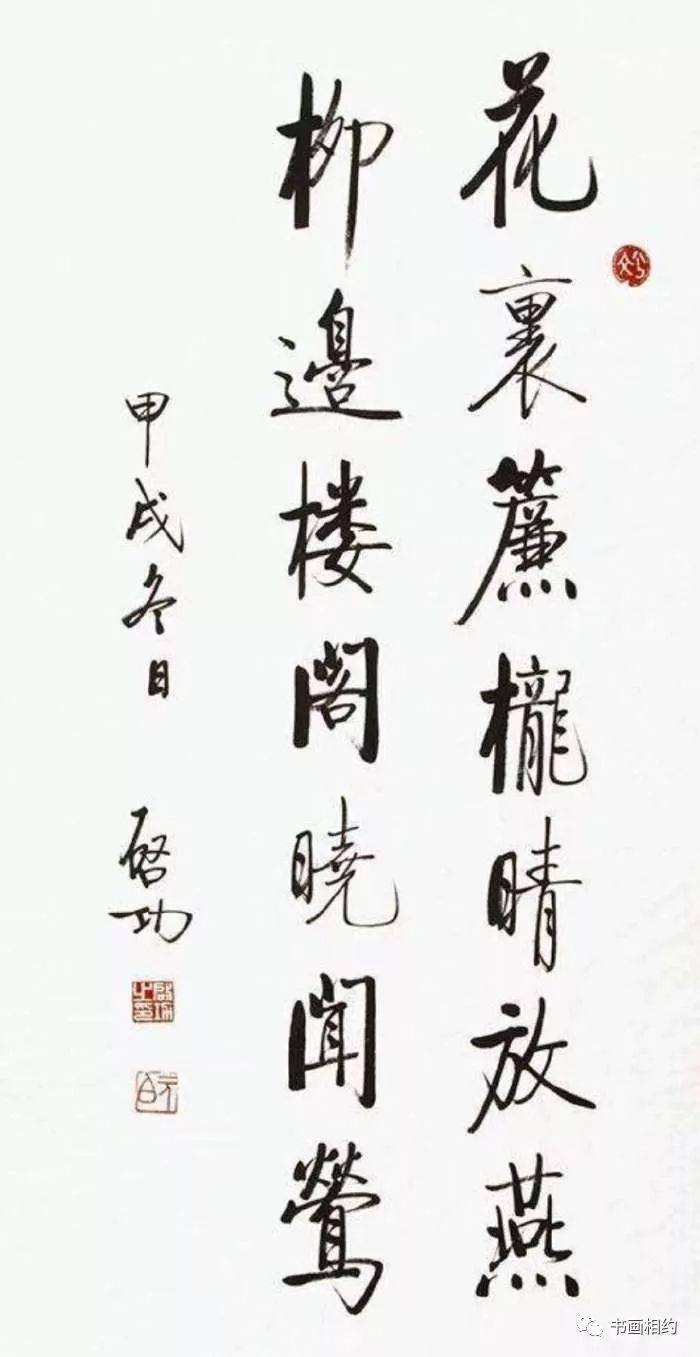 花裏簾櫳晴放燕
柳邊楼阁曉聞鶯
甲戌冬日 启功
书画相约